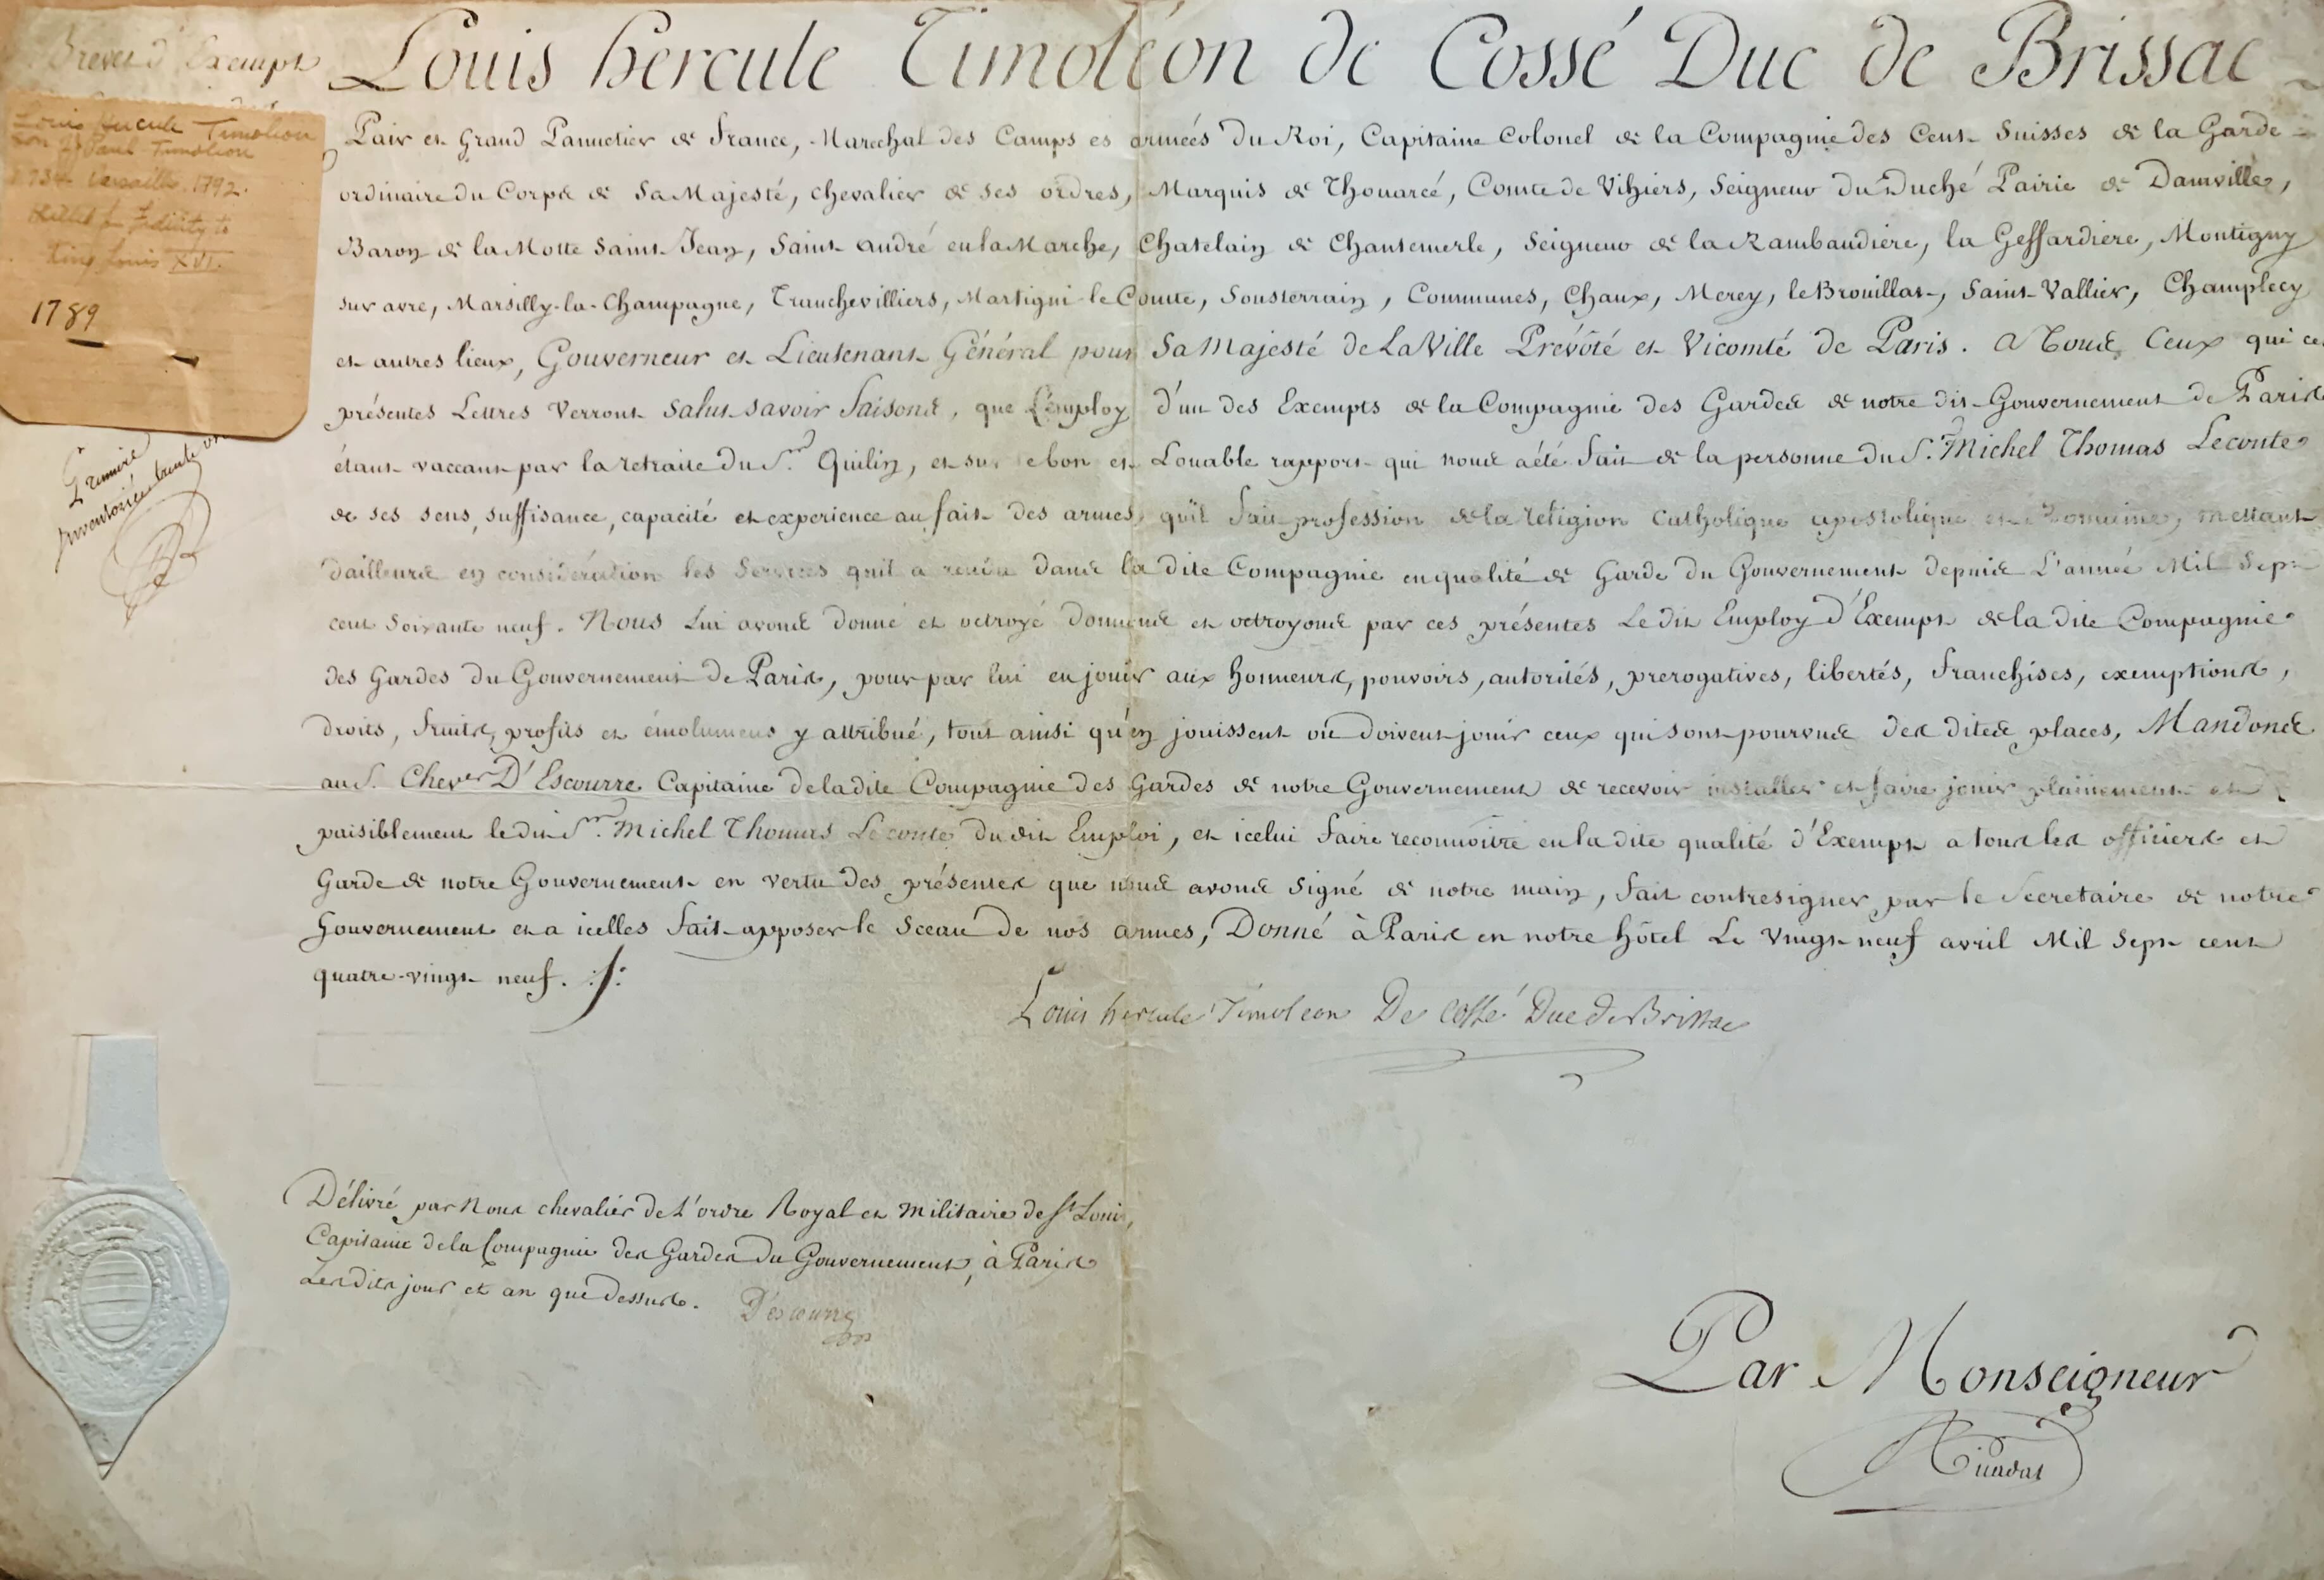 Brevet d'Exempt
Louis hercule Timoléon de Cossé Duc de Brissac
Louis Hercule Timoleon
son of Paul Timoleon
1734 Versailles. 1792.
Killed for fidelity to
King Louis XVI.
1789
Pair et Grand Pannetier de France, Marechal des Camps es armées du Roi, Capitaine Colonel de la Compagnie des Cent Suisses de la Garde
ordinaire du Corps de Sa Majesté, chevalier de ses ordres, Marquis de Thouarcé, Comte de Vihiers, Seigneur du Duché Pairie de Damville,
Baron de la Motte Saint Jean, Saint André en la Marche, Chatelain de Chantemerle, Seigneur de la Rambaudiere, la Geffardiere, Montigny
sur avre, Marsilly-la-Champagne, Tranchevilliers, Martigni le Comte, Sousterrain, Communes, Chaux, Merey, le Brouillat, Saint Vallier, Champlecy
et autres lieux, Gouverneur et Lieutenant Général pour Sa Majesté de La Ville Prévôté et Vicomté de Paris. A Tous Ceux qui ces
présentes Lettres Verront Salut savoir faisons, que L'employ d'un des Exempts de la Compagnie des Gardes de notre dit Gouvernement de Paris
étant vaccant par la retraite du Sr. Quilin, et sur le bon et Louable rapport qui nous a été fait de la personne du Sr. Michel Thomas Leconte
de ses sens, suffisance, capacité et experience au fait des armes, qu'il fait profession de la religion Catholique apostolique et Romaine, mettant
d'ailleurs en considération les Services qu'il a rendu dans la dite Compagnie en qualité de Garde du Gouvernement depuis L'année Mil Sept
cent Soixante neuf. Nous Lui avons donné et octroyé donnons et octroyons par ces présentes Le dit Employ d'Exempt de la dite Compagnie
des Gardes du Gouvernement de Paris, pour par lui en jouir aux honneurs, pouvoirs, autorités, prerogatives, libertés, franchises, exemptions,
droits, fruits, profits et émolumens y attribué, tout ainsi qu'en jouissent ou doivent jouir ceux qui sont pourvus des dites places, Mandons
au S. Chever D'Escourre Capitaine de la dite Compagnie des Gardes de notre Gouvernement de recevoir installer et faire jouir plainement et
paisiblement le dit Sr. Michel Thomas Leconte du dit Emploi, et icelui faire reconnoitre en la dite qualité d'Exempt a tous les officiers et
Garde de notre Gouvernement en vertu des présentes que nous avons signé de notre main, fait contresigner par le Secretaire de notre
Gouvernement et a icelles fait apposer le Sceau de nos armes, Donné à Paris en notre hôtel Le Vingt neuf avril Mil Sept cent
quatre-vingt neuf.
Louis hercule Timoleon De Cossé Duc de Brissac
Délivré par Nous chevalier de L'ordre Royal et Militaire de St Louis,
Capitaine de la Compagnie des Gardes du Gouvernement, à Paris
Lesdits jour et an que dessus.
D'escourre
Par Monseigneur